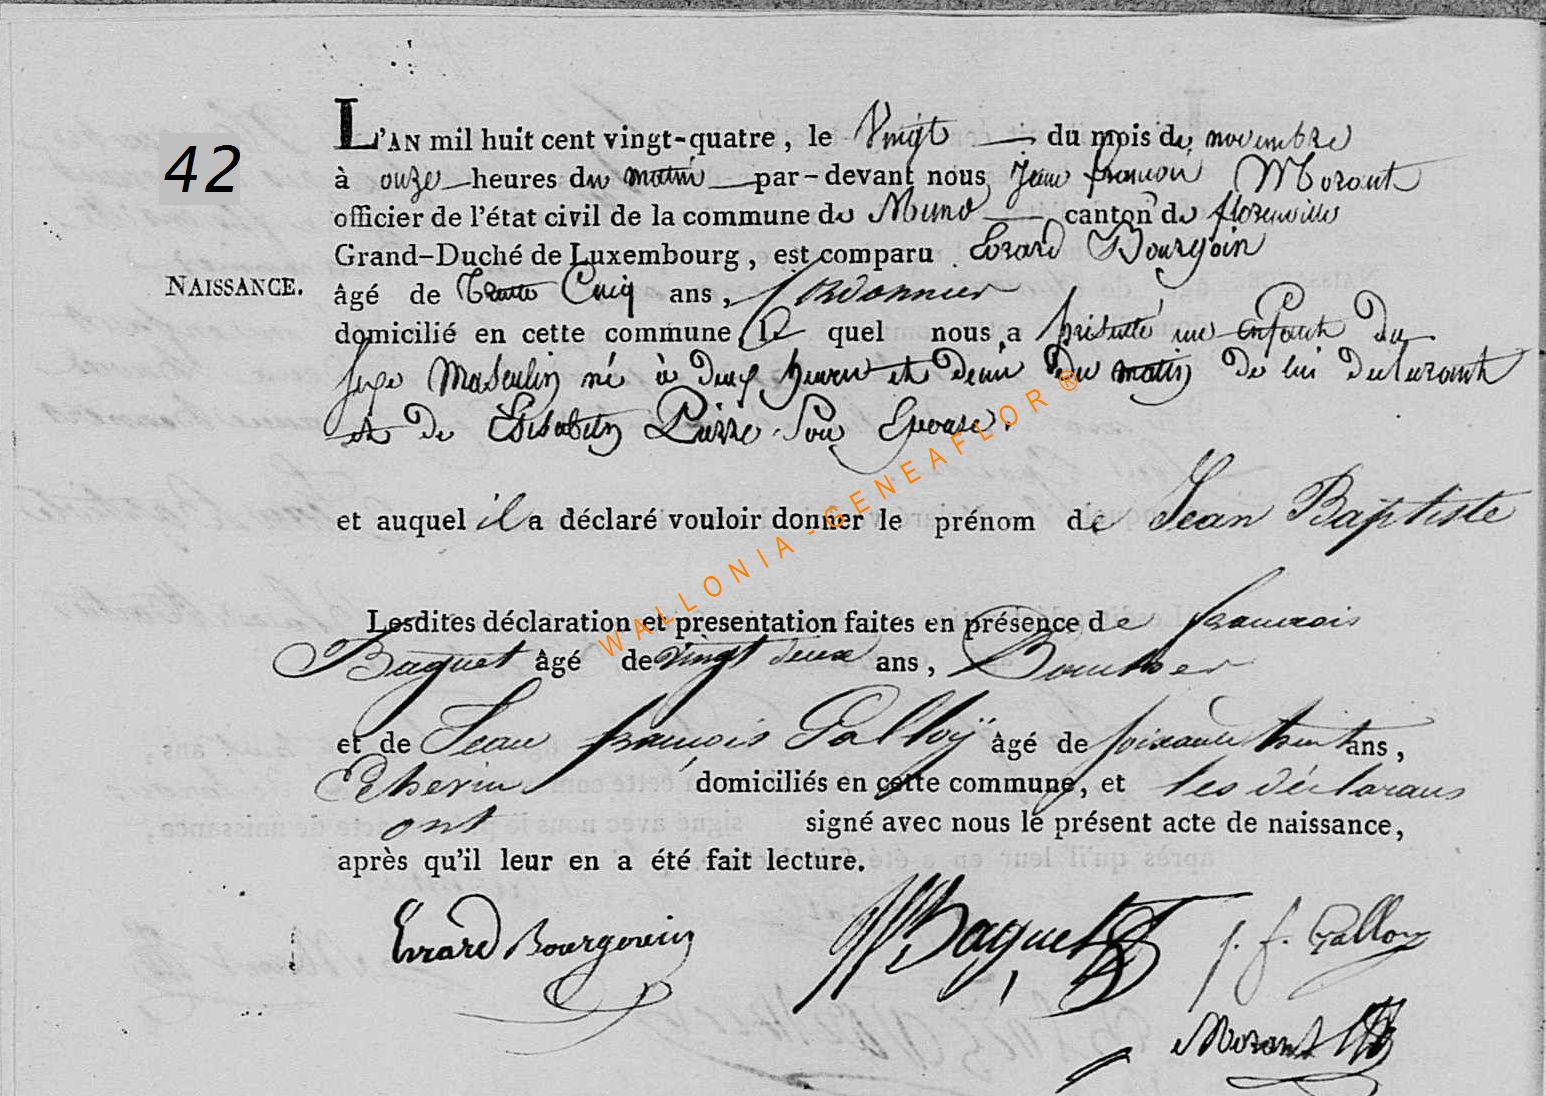 42
L'AN mil huit cent vingt-quatre, le Vingt du mois de novembre
à onze heures du matin par-devant nous Jean françois Morant
officier de l'état civil de la commune de Muno canton de florenville
Grand-Duché de Luxembourg, est comparu Evrard Bourgoin
NAISSANCE.
âgé de Trente Cinq ans, Cordonnier
domicilié en cette commune, le quel nous a présenté un enfant du
sexe Masculin né à deux heures et demi du matin de lui declarant
et de Elisabeth Pierre son Epouse.
et auquel il a déclaré vouloir donner le prénom de Jean Baptiste
Lesdites déclaration et presentation faites en présence de francois
Baguet âgé de vingt deux ans,
et de Jean françois Galloÿ âgé de soixante huit ans,
Echevin domiciliés en cette commune, et les déclarans
ont signé avec nous le présent acte de naissance,
après qu'il leur en a été fait lecture.
Evrard Bourgouin Baguet j. f. Galloy
Morant
WALLONIA - GENEAFLOR ®